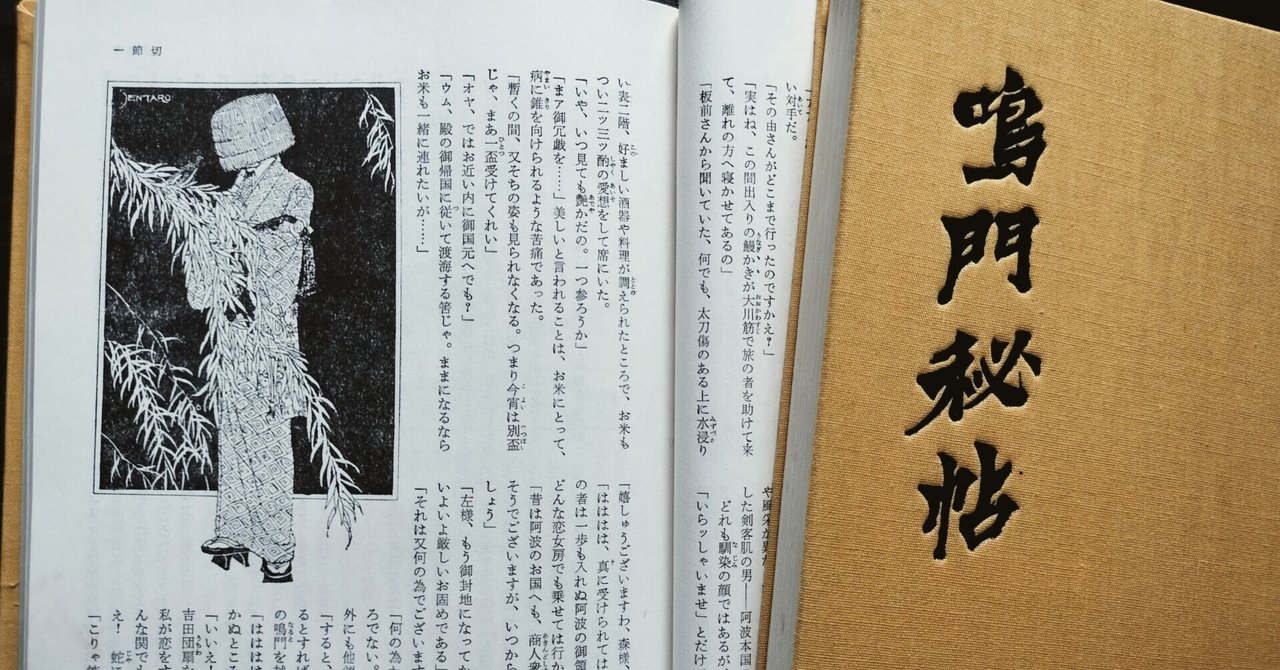 鳴門秘帖
い対手だ。
「その由さんがどこまで行ったのですかえ？」
「実はね、この間出入りの鰻かきが大川筋で旅の者を助けて来
て、離れの方へ寝かせてあるの」
「板前さんから聞いていた、何でも、太刀傷のある上に水浸り
した剣客肌の男――阿波本国
どれも馴染の顔ではあるが
「いらッしゃいませ」とだけ
一節切
JENTARO
い表二階、好ましい酒器や料理が調えられたところで、お米も
つい二ッ三ッ酌の愛想をして席にいた。
「いや、いつ見ても艶かだの。一つ参ろうか」
「まア御冗戯を……」美しいと言われることは、お米にとって、
病に錐を向けられるような苦痛であった。
「暫くの間、又そちの姿も見られなくなる。つまり今宵は別盃
じゃ、まあ一盃受けてくれい」
「オヤ、ではお近い内に御国元へでも？」
「ウム、殿の御帰国に従いて渡海する筈じゃ。ままになるなら
お米も一緒に連れたいが……」
「嬉しゅうございますわ、森様、
「はははは、真に受けられては
の者は一歩も入れぬ阿波の御領
どんな恋女房でも乗せては行か
「昔は阿波のお国へも、商人衆
そうでございますが、いつから
しょう」
「左様、もう御封地になってか
いよいよ厳しいお固めである」
「それは又何の為でございます
「何の為
ろでない。
外にも他
「すると、
るとすれば
の鳴門を
「はははは
かぬところ
「いいえ！
吉田団扇な
私が恋をす
んな関でも
え！　蛇に
「こりゃ